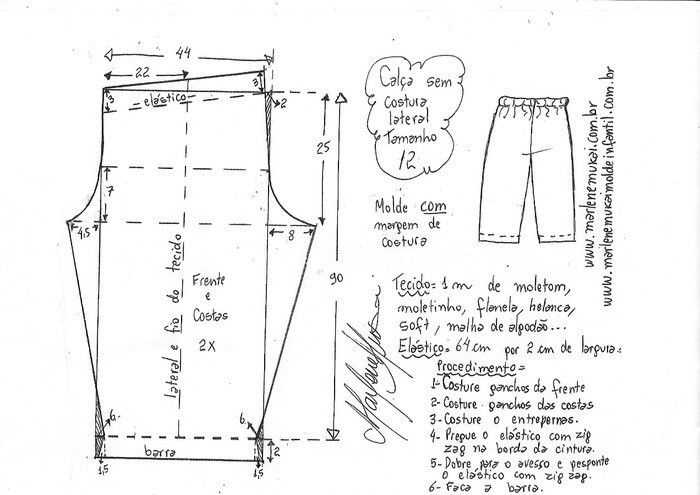 44
22
3
3
elástico
2
25
7
4,5
8
90
lateral e fio do tecido
Frente
e
Costas
2X
6
6
barra
1,5
1,5
2
Calça sem
costura
lateral
Tamanho
12
Molde com
margem de
costura
www.marlenemukai.com.br
www.marlenemukaimoldeinfantil.com.br
Tecido= 1m de moletom,
moletinho, flanela, helanca,
soft, malha de algodão...
Elástico= 64cm por 2 cm de largura.
Procedimento=
1- Costure ganchos da frente
2- Costure ganchos das costas
3- Costure o entrepernas.
4- Pregue o elástico com zig
zag na borda da cintura.
5- Dobre para o avesso e pesponte
o elástico com zig zag.
6- Faça a barra.